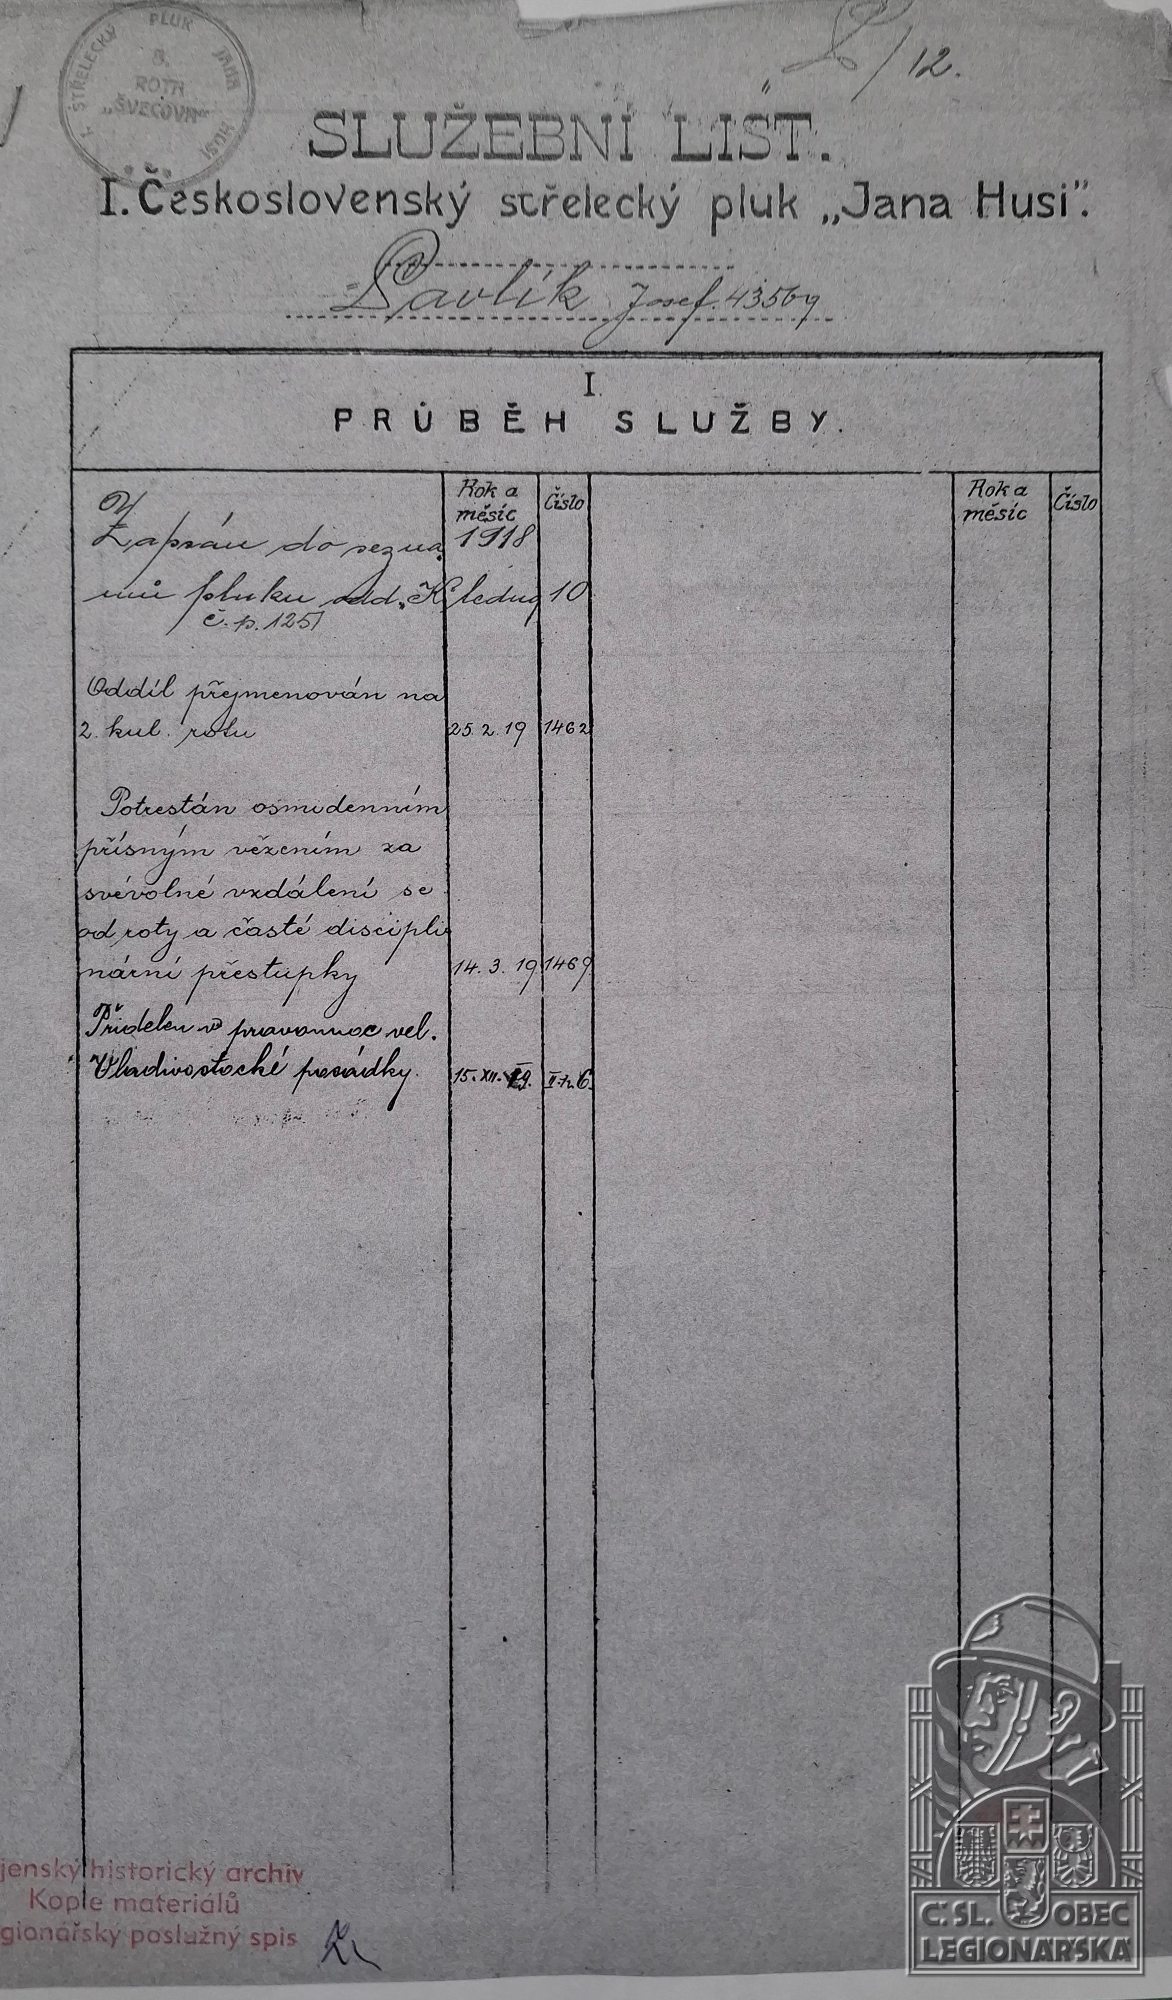 STŘELECKÝ PLUK JANA HUSI
ROTA
„ŠVECOVA“
12.
SLUŽEBNÍ LIST.
I. Československý střelecký pluk „Jana Husi“.
Pavlík Josef. 43569
I
PRŮBĚH SLUŽBY.
Rok a měsíc
Číslo
Rok a měsíc
Číslo
Zapsán do sezna- 1918
mů pluku odd. „K“ leden 10
č. p. 1251
Oddíl přejmenován na
2. kul. rotu 25. 2. 19 1462
Potrestán osmidenním
přísným vězením za
svévolné vzdálení se
od roty a časté discipli-
nární přestupky 14. 3. 19 1469
Přidělen v pravomoc vel.
Vladivostocké posádky. 15. XII. 19.
jenský historický archiv
Kopie materiálů
gionářský poslužný spis
Č. SL. OBEC
LEGIONÁŘSKÁ